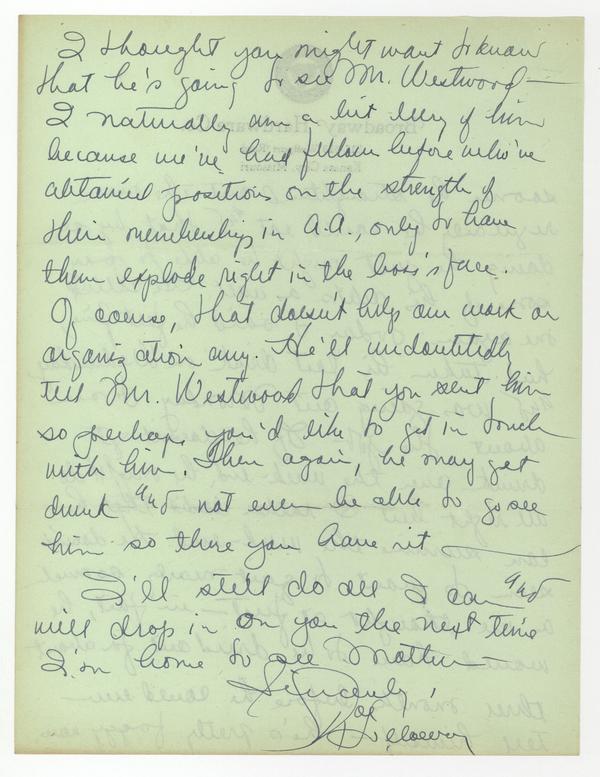 I thought you might want to know
that he's going to see Mr. Westwood—
I naturally am a bit leery of him
because we've had fellows before who've
obtained positions on the strength of
their membership in A.A., only to have
them explode right in the boss's face.
Of course, that doesn't help our work or
organization any. He'll undoubtedly
tell Mr. Westwood that you sent him
so perhaps you'd like to get in touch
with him. Then again, he may get
drunk and not even be able to go see
him so there you have it—
I'll still do all I can and
will drop in on you the next time
I'm home to see Mother—
Sincerely,
Holloway